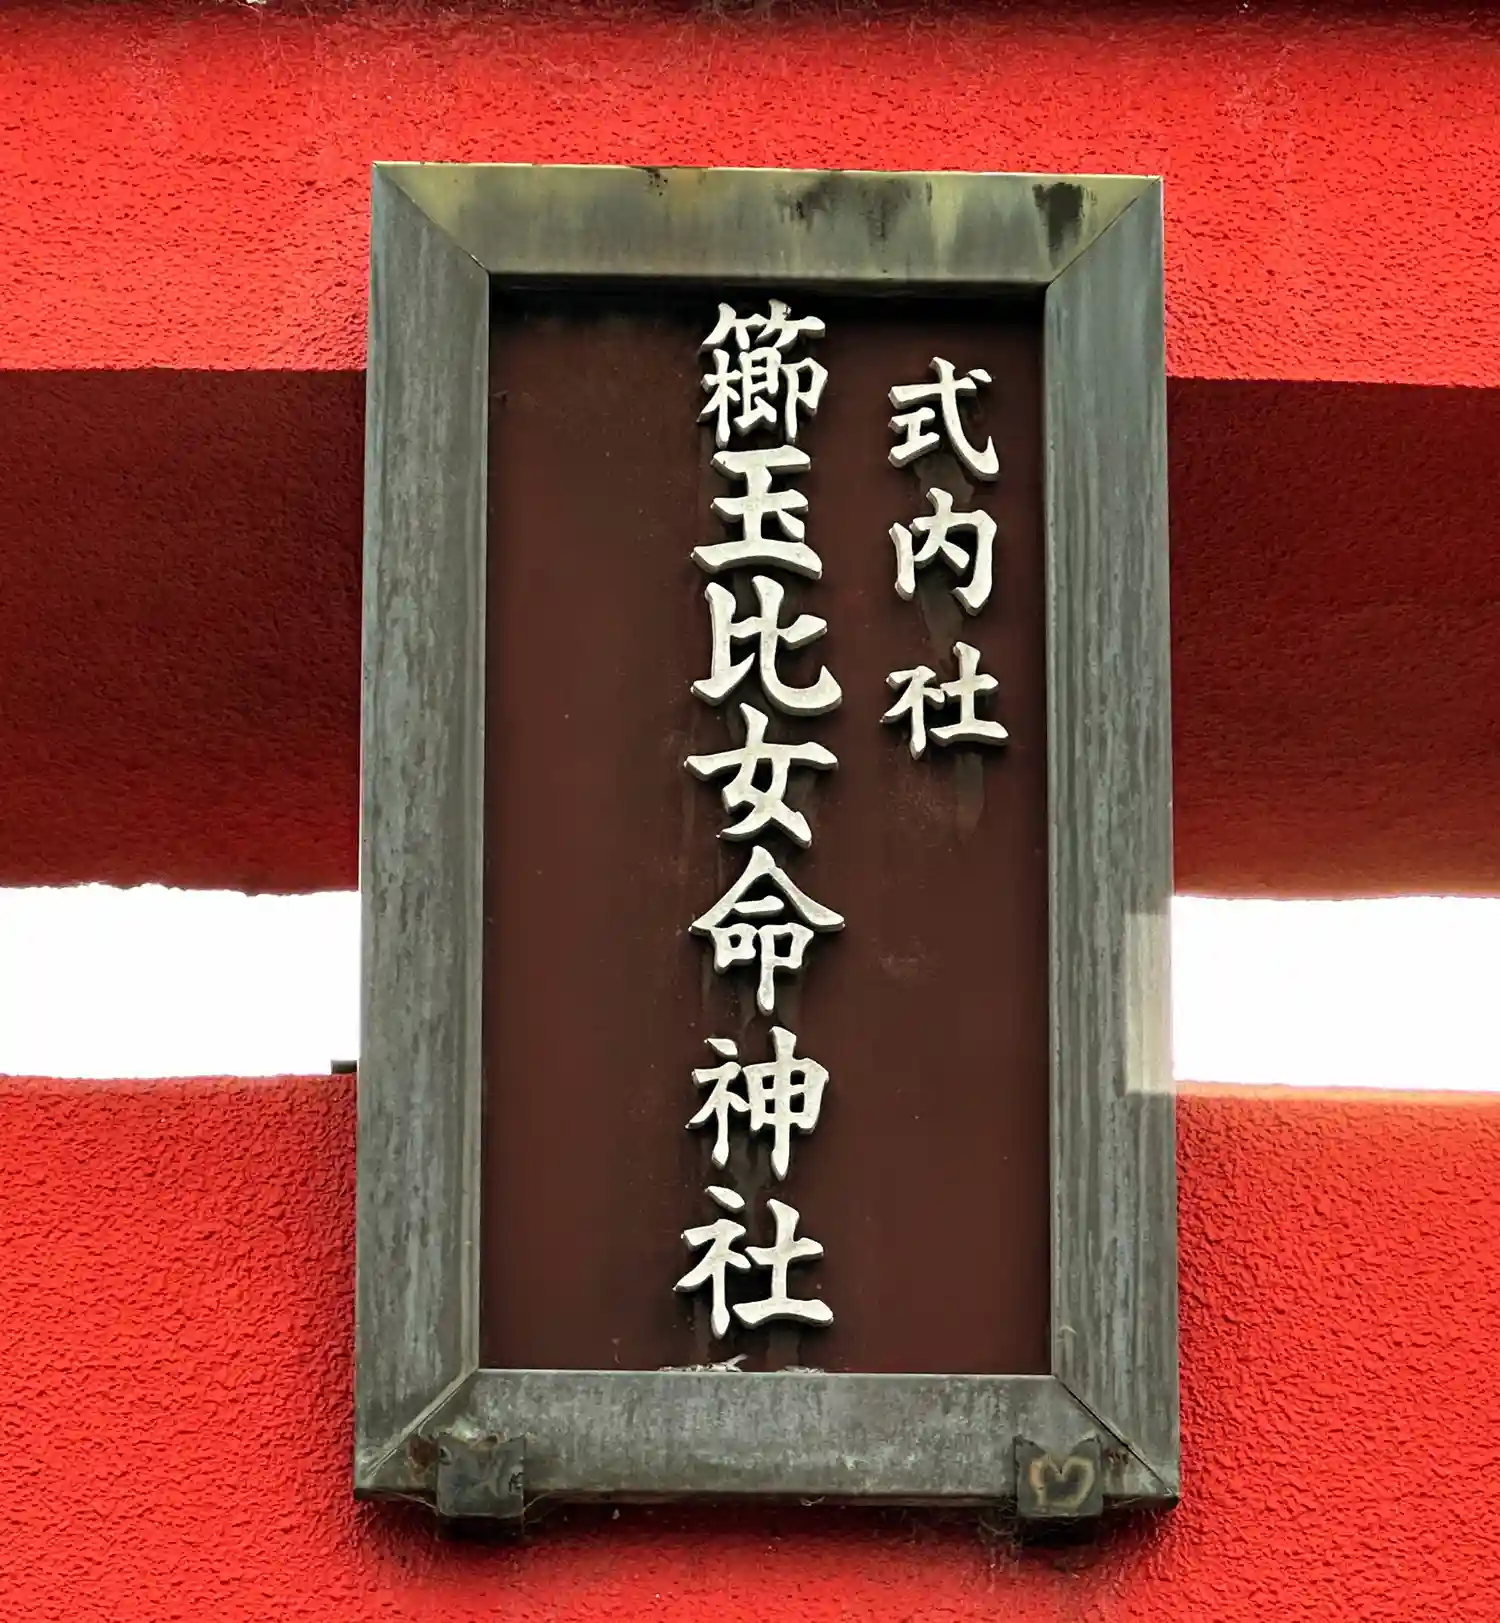 式内社
櫛玉比女命神社